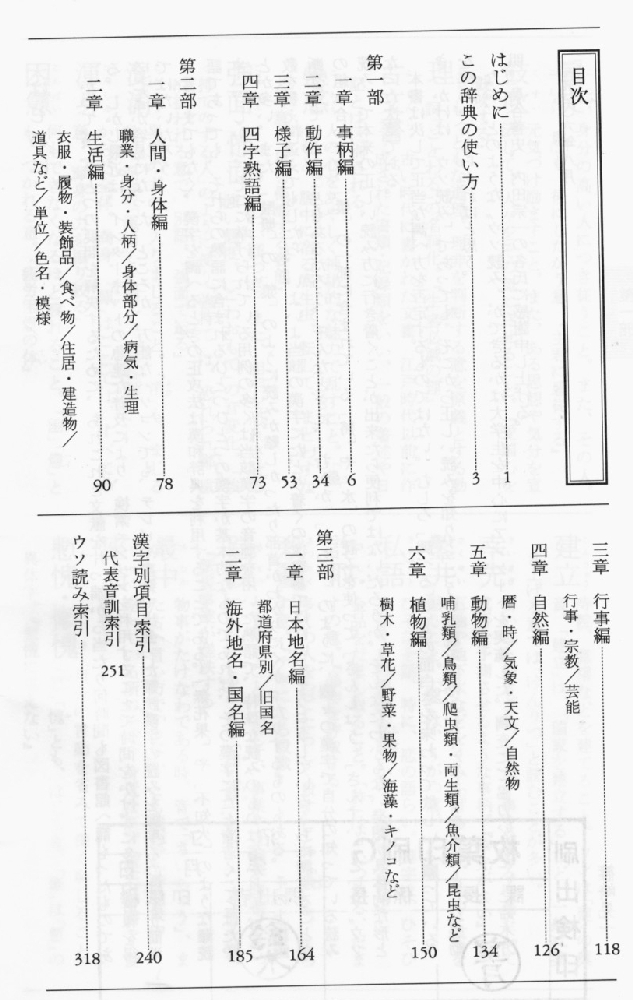 目次
はじめに 1
この辞典の使い方 3
第一部
一章 事柄編 6
二章 動作編 34
三章 様子編 53
四章 四字熟語編 73
第二部
一章 人間・身体編 78
職業・身分・人柄／身体部分／病気・生理
二章 生活編 90
衣服・履物・装飾品／食べ物／住居・建造物／
道具など／単位／色名・模様
三章 行事編 118
行事・宗教／芸能
四章 自然編 126
暦・時／気象・天文／自然物
五章 動物編 134
哺乳類／鳥類／爬虫類・両生類／魚介類／昆虫など
六章 植物編 150
樹木・草花／野菜・果物／海藻・キノコなど
第三部
一章 日本地名編 164
都道府県別／旧国名
二章 海外地名・国名編 185
漢字別項目索引 240
代表音訓索引 251
ウソ読み索引 318